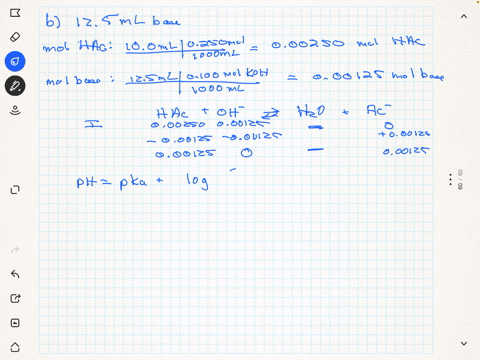 b) 12.5 mL base
mol HAc: 10.0mL | 0.250mol / 1000mL = 0.00250 mol HAC
mol base: 12.5mL | 0.100 mol KOH / 1000 mL = 0.00125 mol base
HAc + OH⁻ ⇄ H₂O + Ac⁻
I 0.00250 0.00125 — 0
-0.00125 -0.00125 +0.00125
0.00125 0 — 0.00125
pH = pka + log
09 / 09